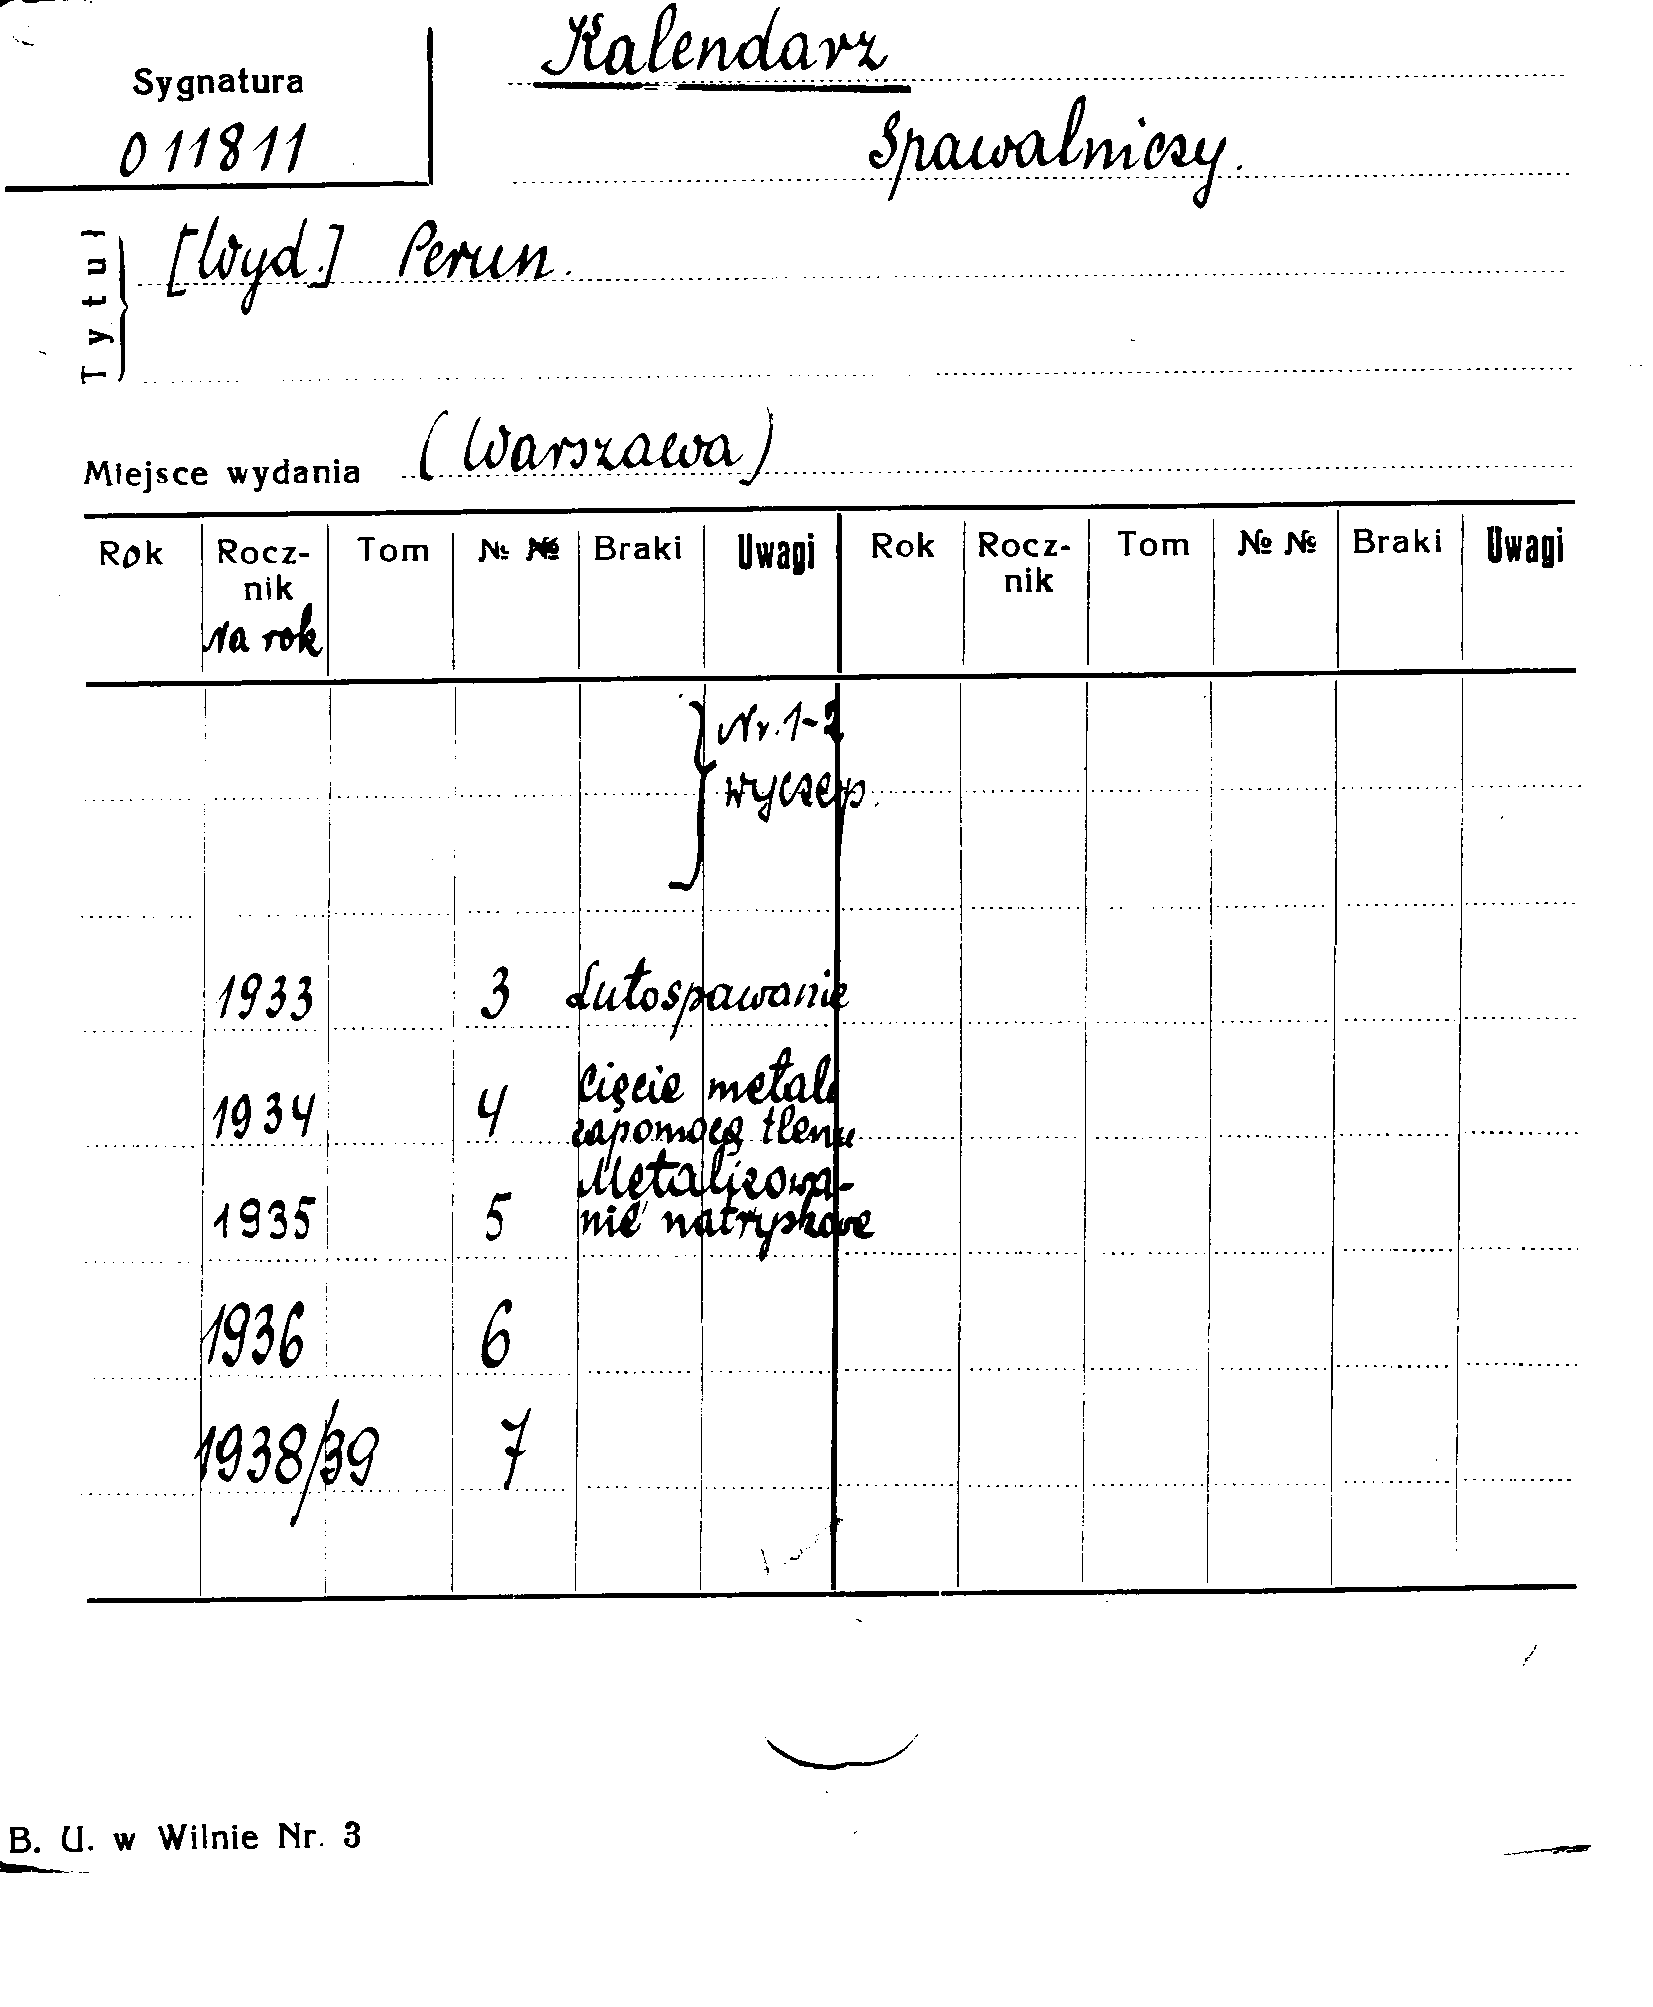 Kalendarz
Sygnatura
011811
Spawalniczy.
Tytuł
[Wyd.] Perun.
Miejsce wydania (Warszawa)
Rok Rocz-nik Tom № № Braki Uwagi Rok Rocz-nik Tom № № Braki Uwagi
Na rok
Nr. 1-2
wyczerp.
1933 3 Lutospawanie
1934 4 Cięcie metali
zapomocą tlenu
Metalizowa-
1935 5 nie natryskowe
1936 6
1938/39 7
B. U. w Wilnie Nr. 3